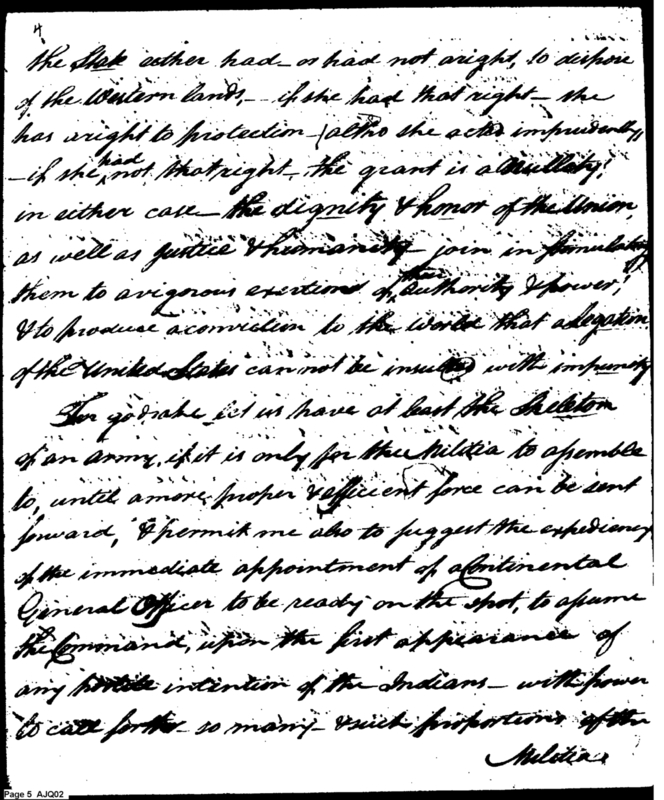 4
the State either had – or had not a right, to dispose
of the Western lands, – if she had that right – she
has a right to protection – (altho she acted imprudently,
– if she had not that right – the grant is a Nullity;
in either case – the dignity & honor of the Union,
as well as justice & humanity – join in
them to a vigorous exertion of their authority & power;
& to produce a conviction to the World that a Legation
of the United States can not be insulted with impunity
For god sake let us have at least the Skeleton
of an army, if it is only for the Militia to assemble
to, until a more proper & efficient force can be sent
forward, & permit me also to suggest the expediency
of the immediate appointment of a Continental
General Officer to be ready on the spot, to assume
the Command, upon the first appearance of
any hostile intention of the Indians – with power
to call forth – so many – & such proportions of the
Militia
Page 5 AJQ02